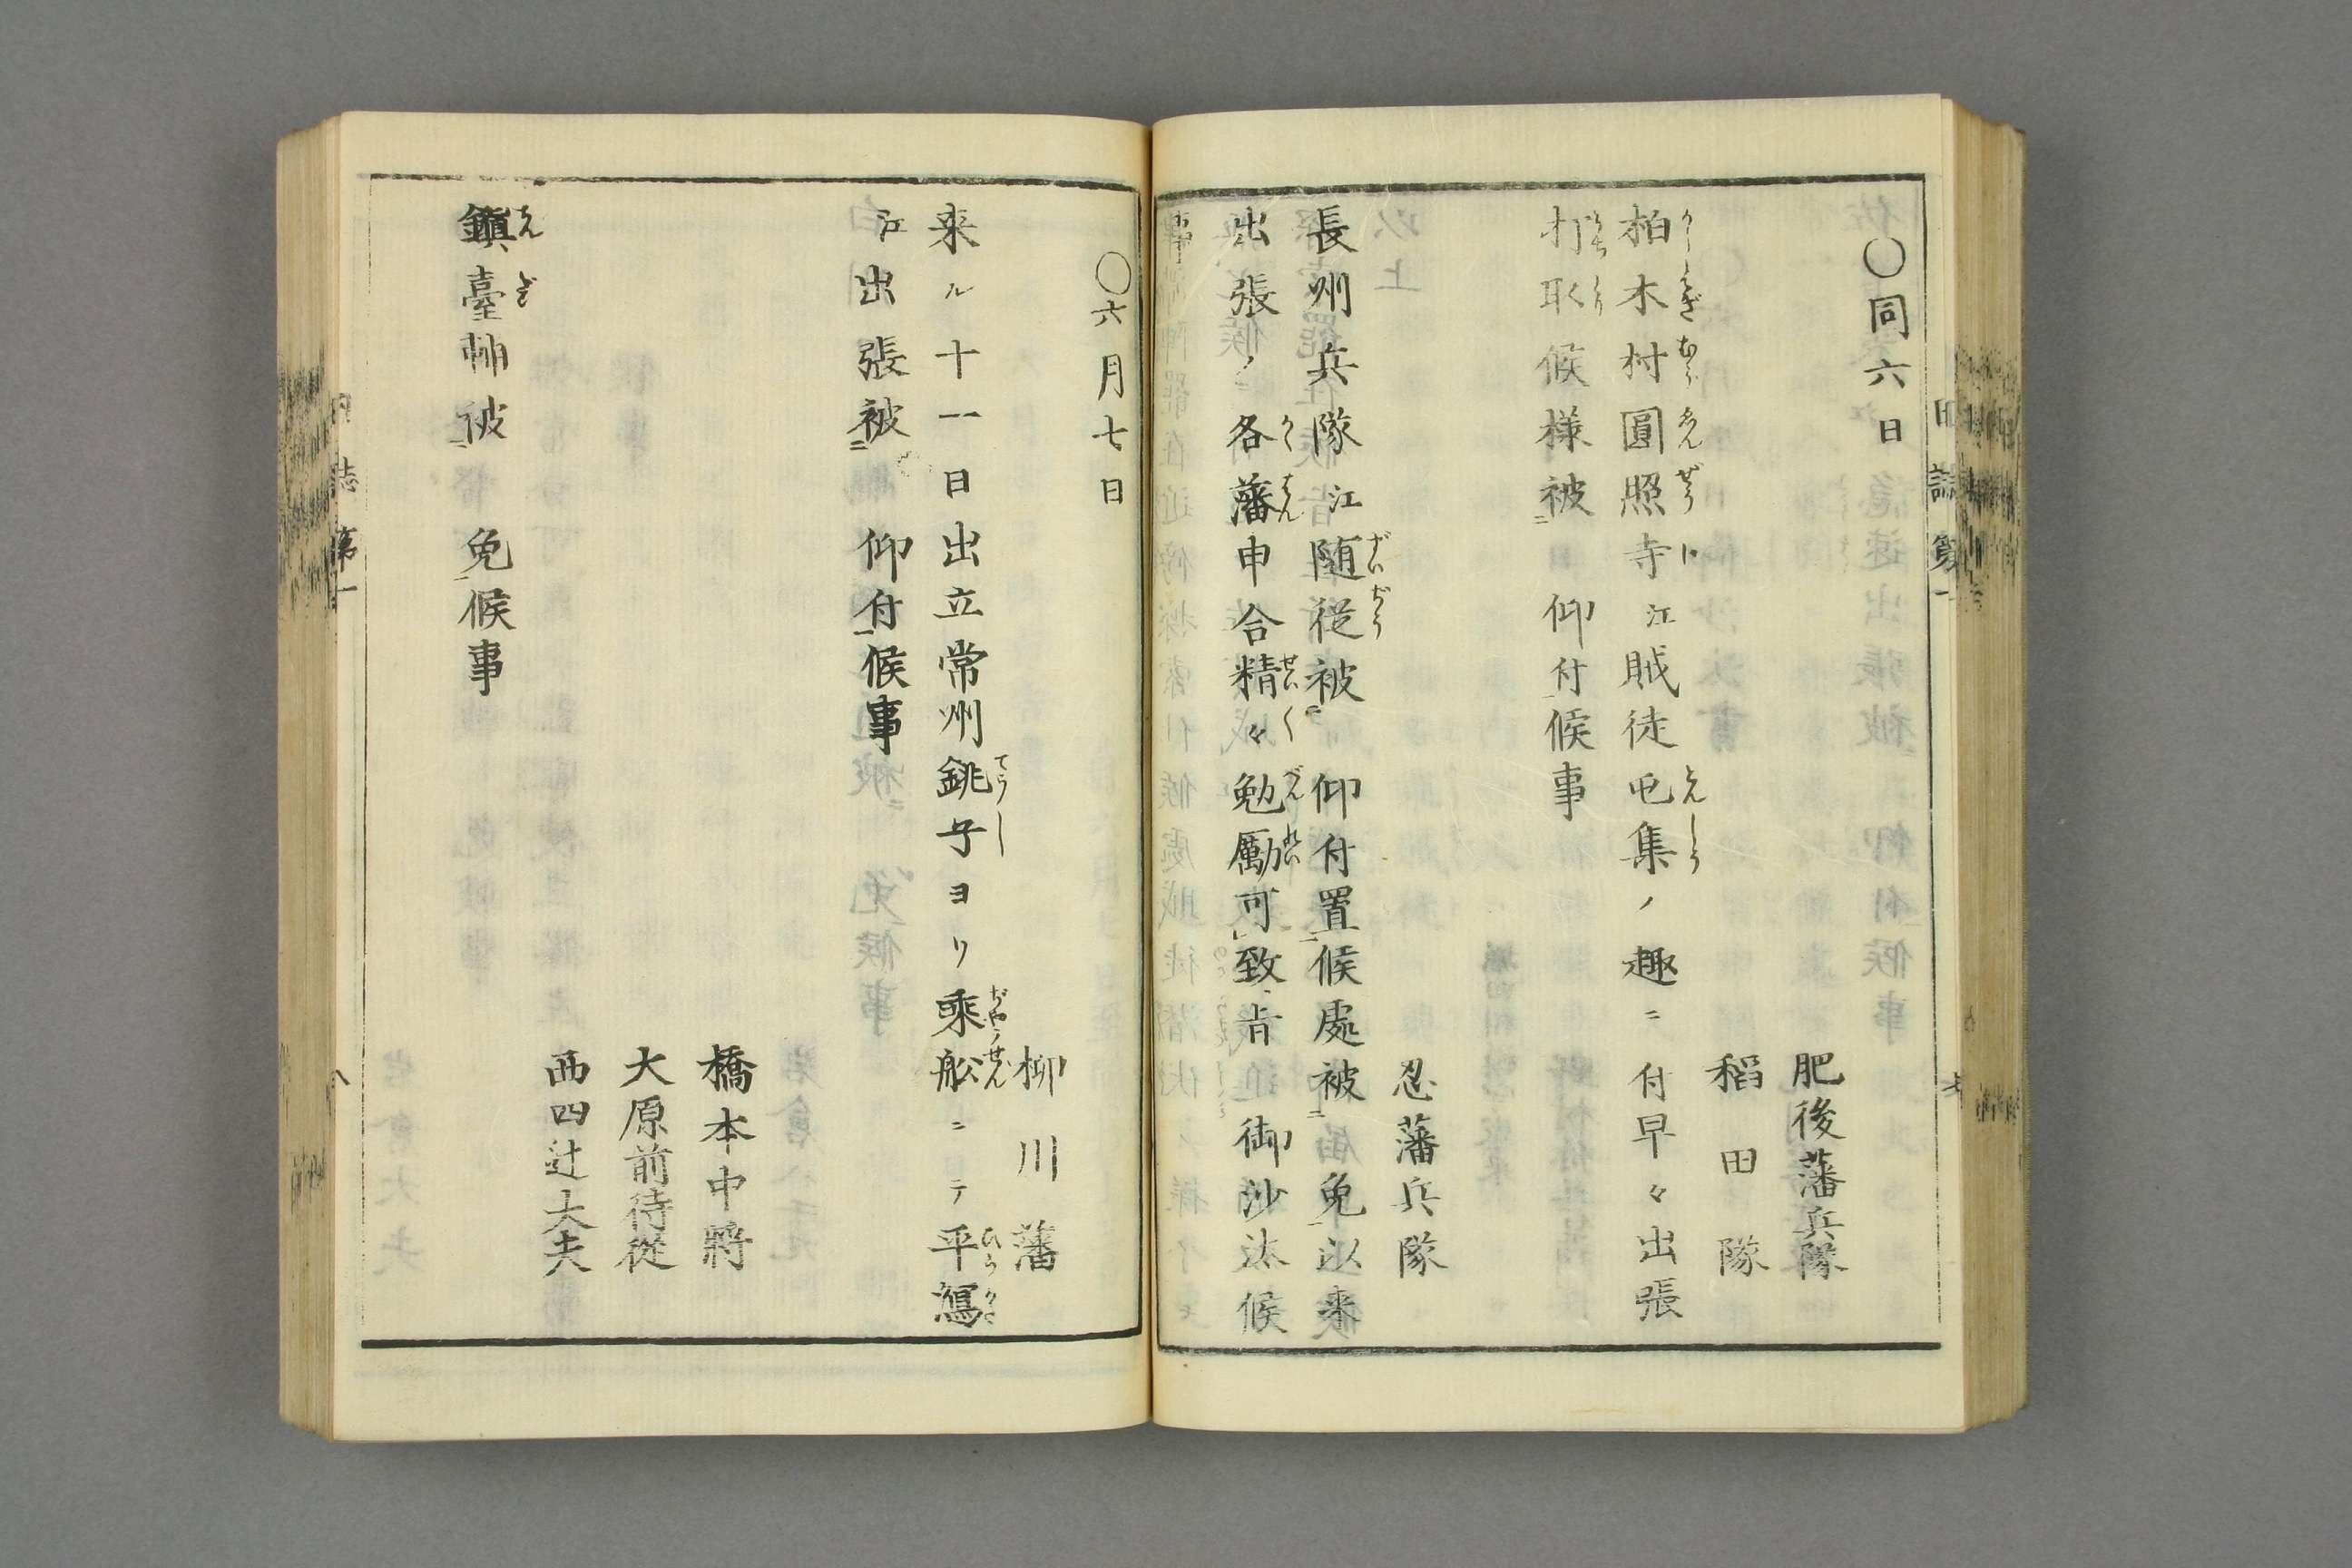 〇同六日
肥後藩兵隊
稻田隊
柏木村圓照寺江賊徒屯集ノ趣ニ付早々出張
打取候様被仰付候事
忍藩兵隊
長州兵隊江随従被仰付置候處被免以来
出張ノ各藩申合精々勉勵可致旨御沙汰候
事
〇六月七日
柳川藩
来ル十一日出立常州銚子ヨリ乗舩ニテ平潟
江出張被仰付候事
橋本中將
大原前侍從
西四辻大夫
鎮臺輔被免候事